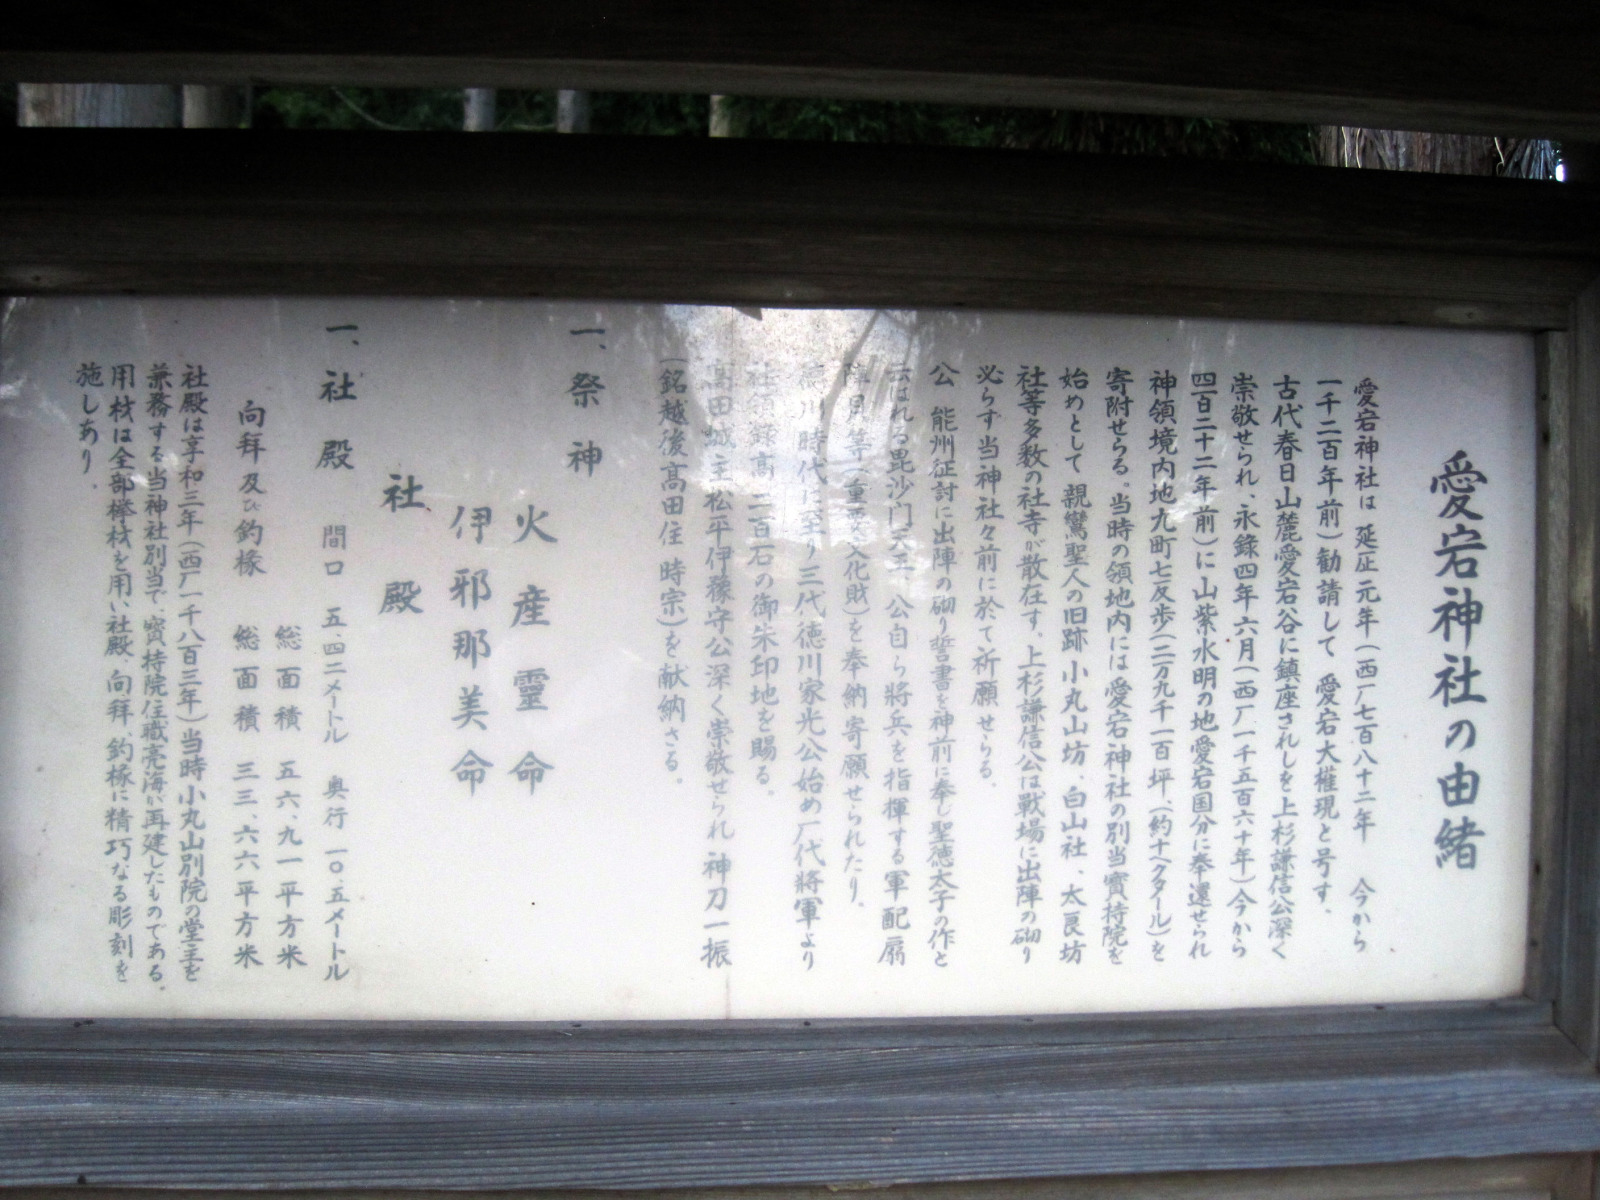 愛宕神社の由緒
愛宕神社は 延征元年(西厂七百八十二年 今から
一千二百年前)勧請して 愛宕大権現と号す、
古代春日山麓愛宕谷に鎮座されしを上杉謙信公深く
崇敬せられ、永録四年六月(西厂一千五百六十年)今から
四百二十二年前)に山紫水明の地愛宕国分に奉還せられ
神領境内地九町七反歩(二万九千一百坪、(約十ヘクタール)を
寄附せらる。当時の領地内には愛宕神社の別当寳持院を
始めとして 親鸞聖人の旧跡 小丸山坊、白山社、太良坊
社等多数の社寺が散在す。上杉謙信公は戰場に出陣の砌り
必らず当神社々前に於て祈願せらる。
公 能州征討に出陣の砌り誓書を神前に奉し聖徳太子の作と
云はれる毘沙门天王、公自ら將兵を指揮する軍配扇
陣貝等(重要文化財)を奉納寄願せられたり。
徳川時代に至り三代徳川家光公始め厂代將軍より
社領録高 二百石の御朱印地を賜る。
高田城主松平伊豫守公深く崇敬せられ 神刀一振
(銘越後高田住 時宗)を献納さる。
一、祭神
火産靈命
伊邪那美命
社殿
一、社殿 間口 五.四二メートル 奥行 一〇.五メートル
総面積 五六、九一平方米
向拜及ひ釣椽 総面積 三三、六六平方米
社殿は享和三年(西厂一千八百三年)当時小丸山別院の堂主を
兼務する当神社別当で、寳持院住職亮海が再建したものである。
用材は全部欅材を用い社殿、向拜、釣椽に精巧なる彫刻を
施しあり.